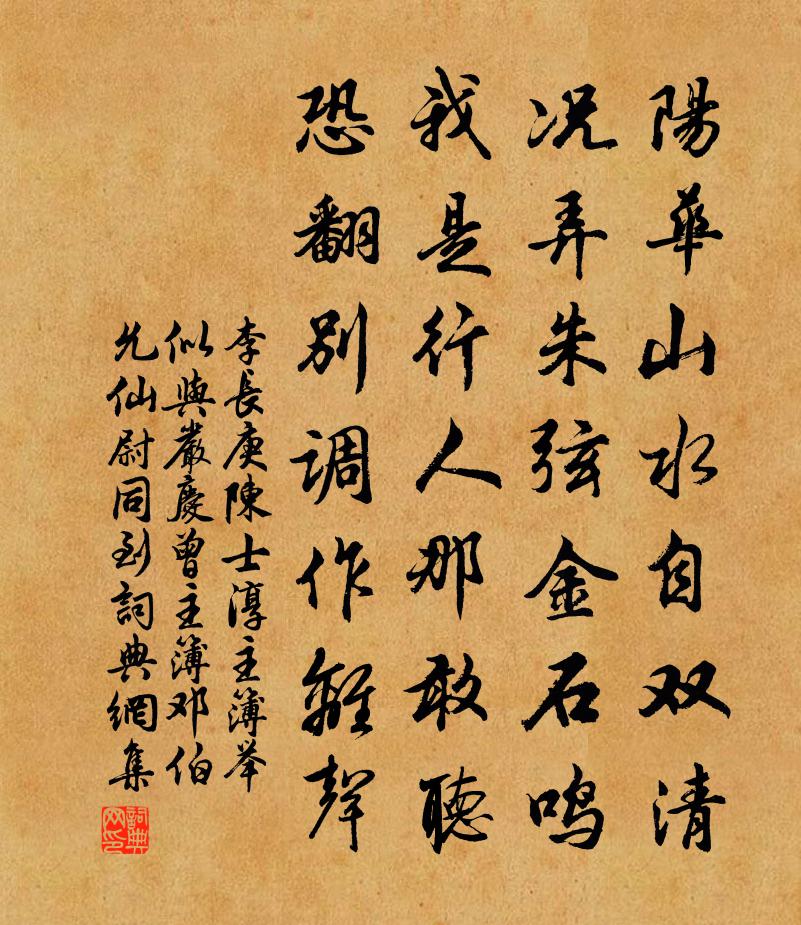 陽華山水自双清
况弄朱弦金石鳴
我是行人那敢聽
恐翻別調作離聲
李長庚陳士淳主簿举
似與嚴慶曾主簿邓伯
允仙尉同到詞典網集
詞典网印